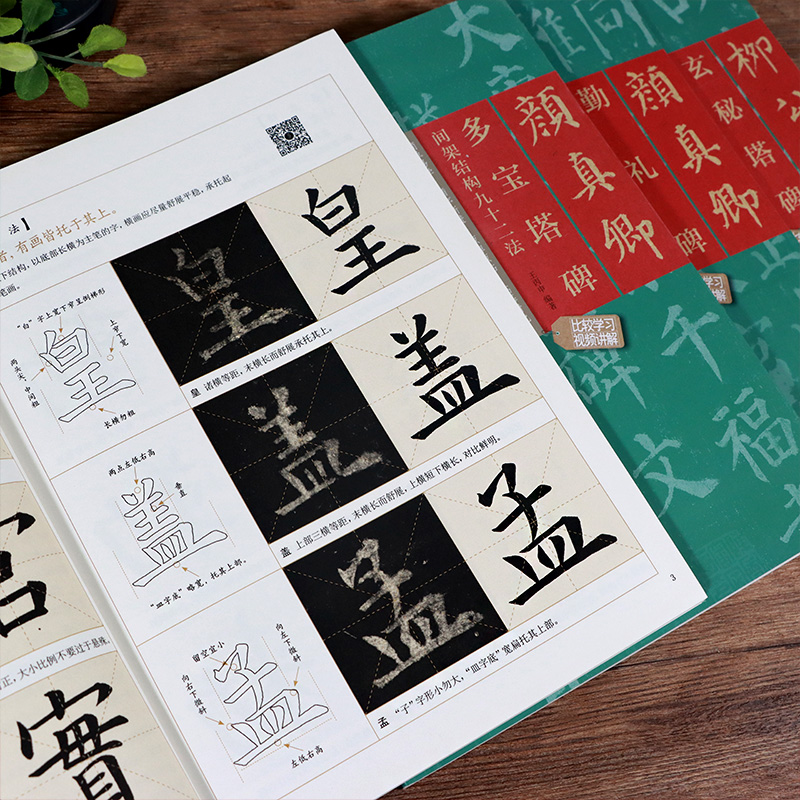 法
者，有画皆托于其上。
下结构，以底部长横为主笔的字，横画应尽量舒展平稳，承托起
笔画。
“白”字上宽下窄呈倒梯形
上窄下宽
两头尖、中间粗
长横勿粗
皇
皇
皇
皇 诸横等距，末横长而舒展承托其上。
两点左低右高
垂直
“皿字底”略宽，托其上部。
盖
盖
盖
盖 上部三横等距，末横长而舒展，上横短下横长，对比鲜明。
留空宜小
向左下微斜
向右下微斜
左低右高
孟
孟
孟
孟 “子”字形小勿大，“皿字底”宽扁托其上部。
3
宫
正，大小比例不要过于悬殊。
實
颜真卿
多宝塔碑
间架结构九十二法
王丙申 编著
比较学习
视频讲解
颜真卿
勤礼碑
学习
讲解
柳公
玄秘塔碑
大
同
千
碑
福
文